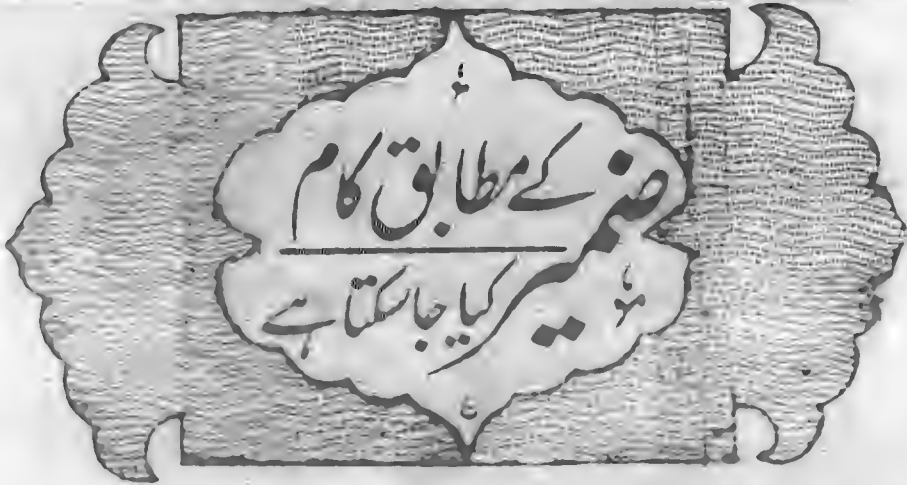 ضمیر کے مطابق کام
کیا جا سکتا ہے